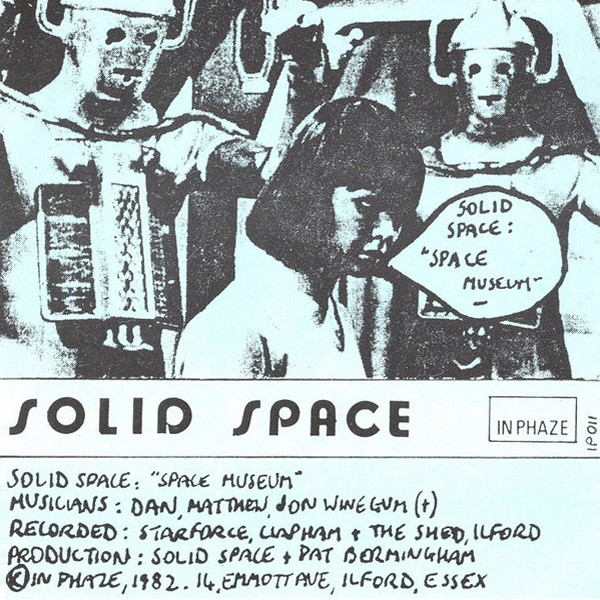 SOLID
SPACE:
"SPACE
MUSEUM"
SOLID SPACE
IN PHAZE
IP 011
SOLID SPACE: "SPACE MUSEUM"
MUSICIANS: DAN, MATTHEW, JON WINEGUM (+)
RECORDED: STARFORCE, CLAPHAM + THE SHED, ILFORD
PRODUCTION: SOLID SPACE + PAT BERMINGHAM
© IN PHAZE, 1982. 14, EMMOTT AVE, ILFORD, ESSEX